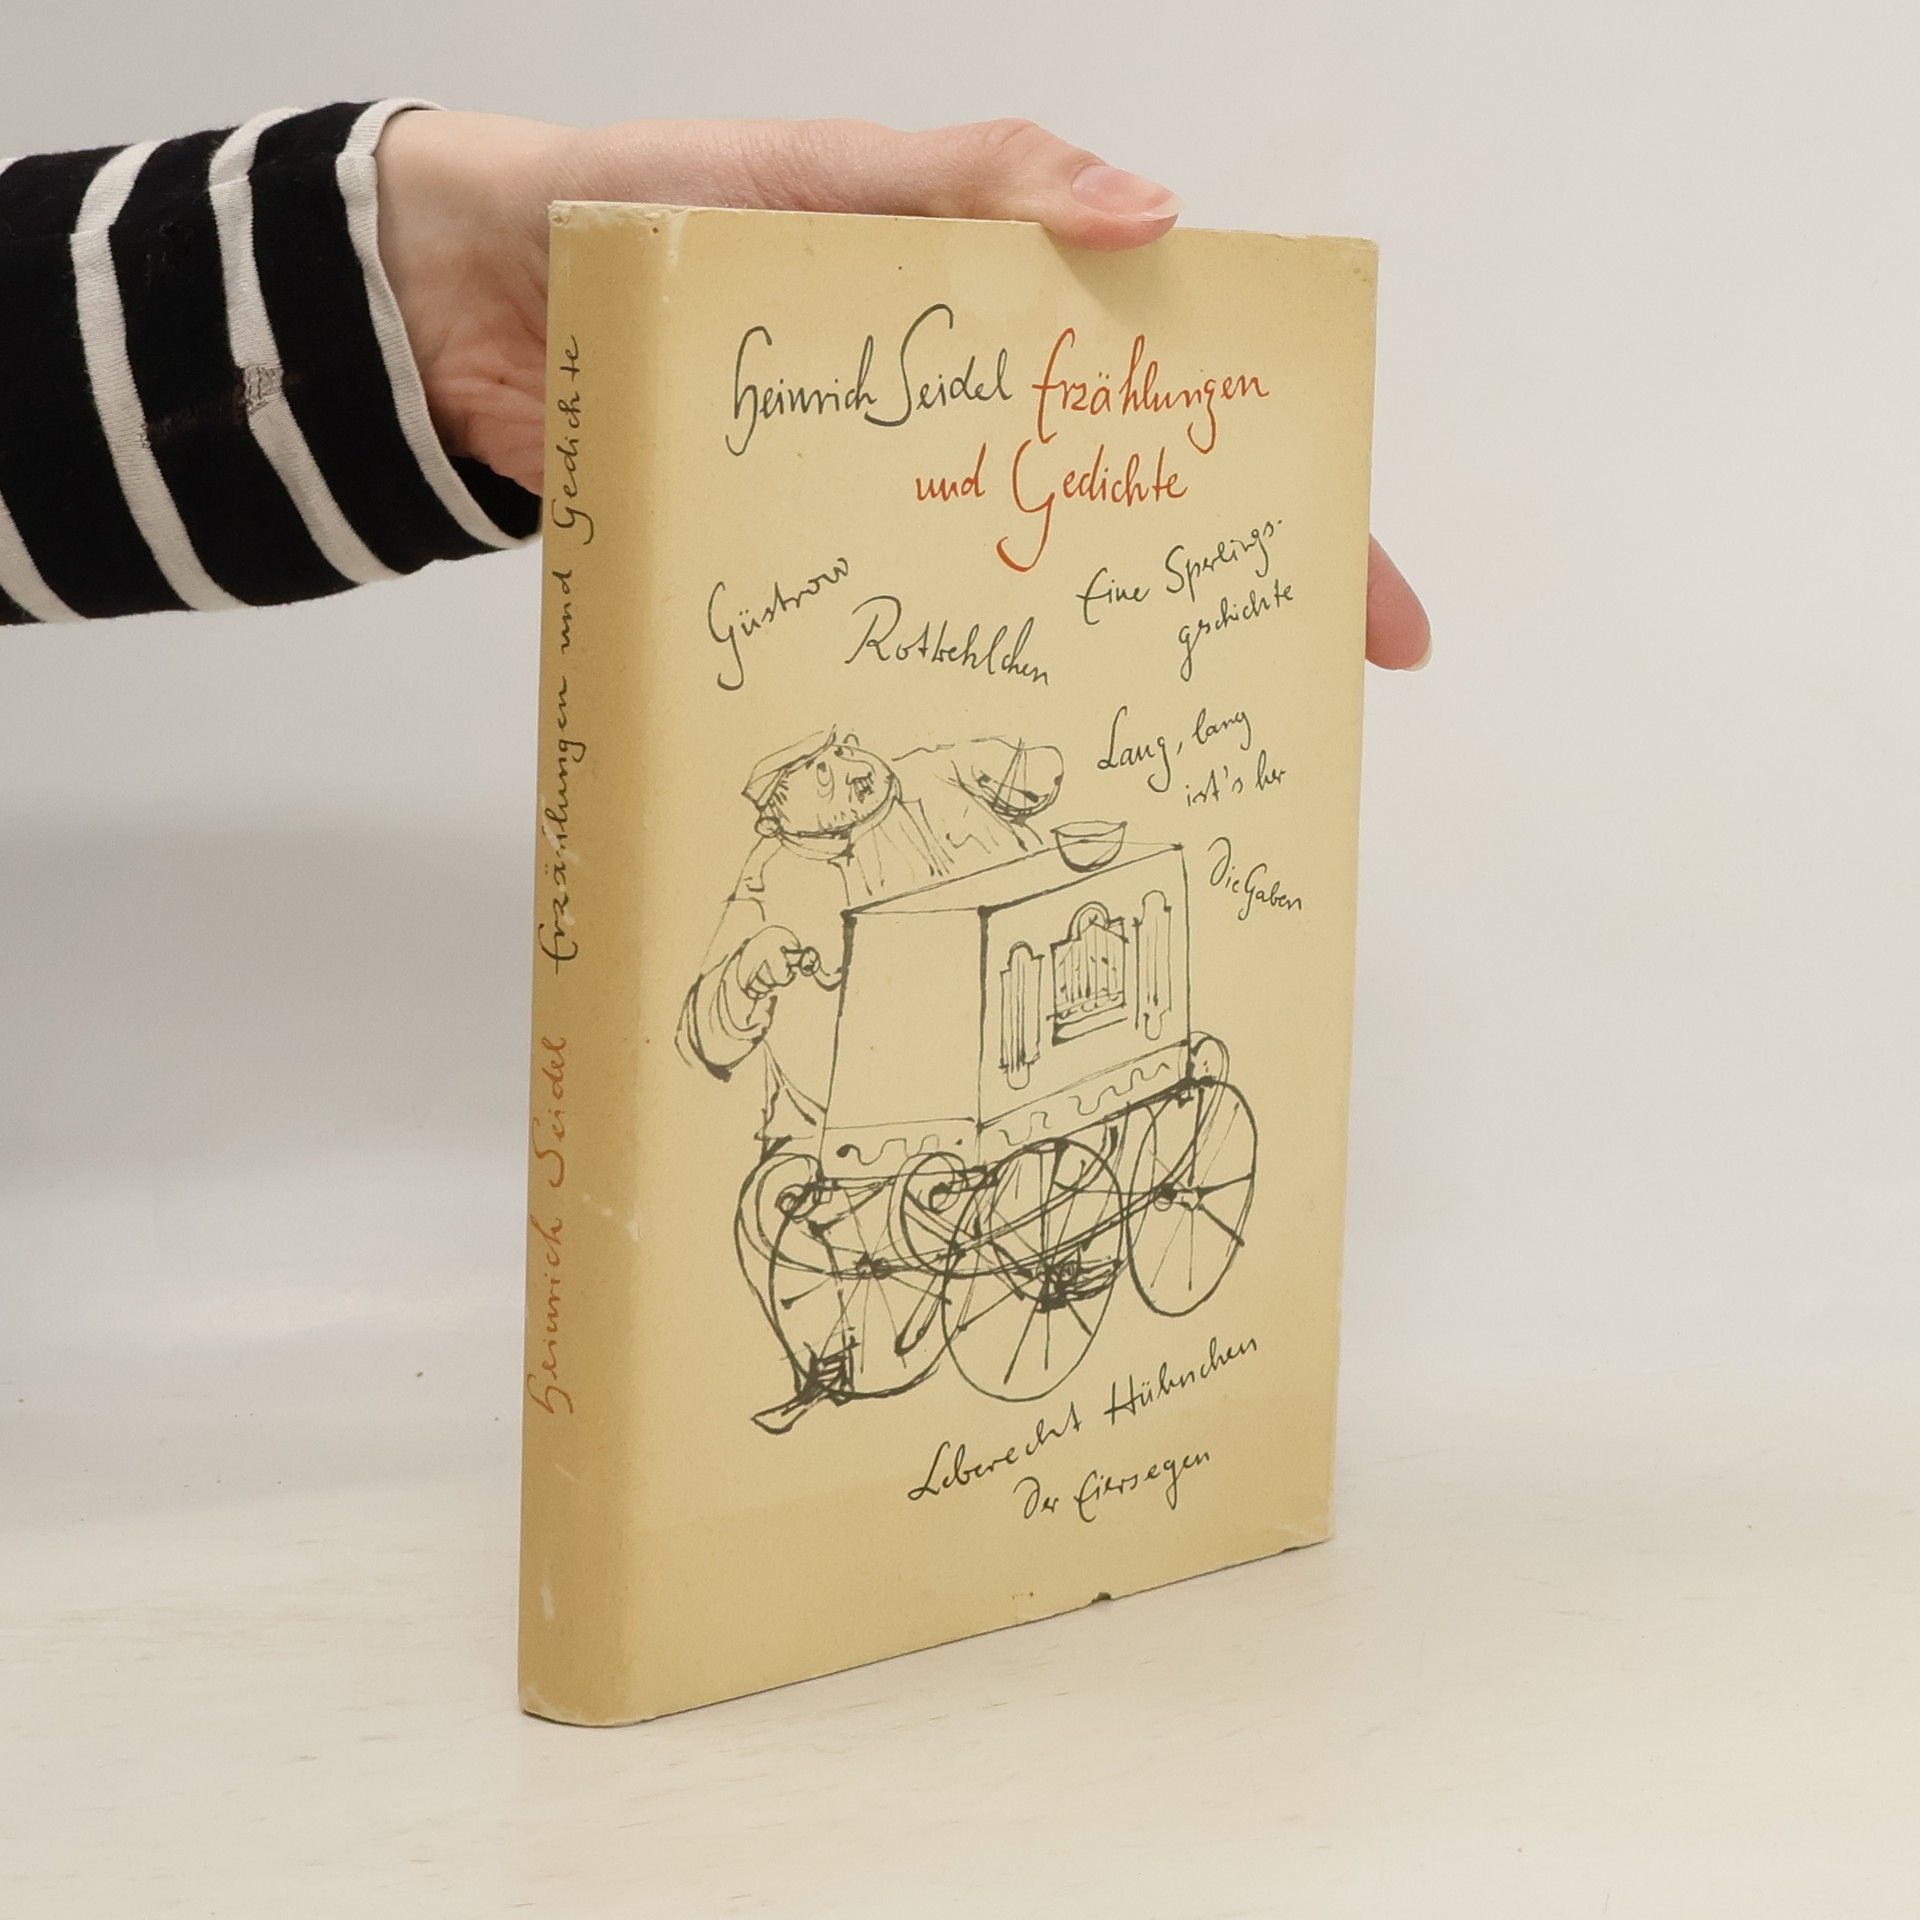 Heinrich Seidel Erzählungen und Gedichte
Heinrich Seidel Erzählungen
und Gedichte
Güstrow
Rotkehlchen
Eine Sperlings-
geschichte
Lang, lang
ist's her
Die Gaben
Leberecht Hühnchen
Der Eiersegen